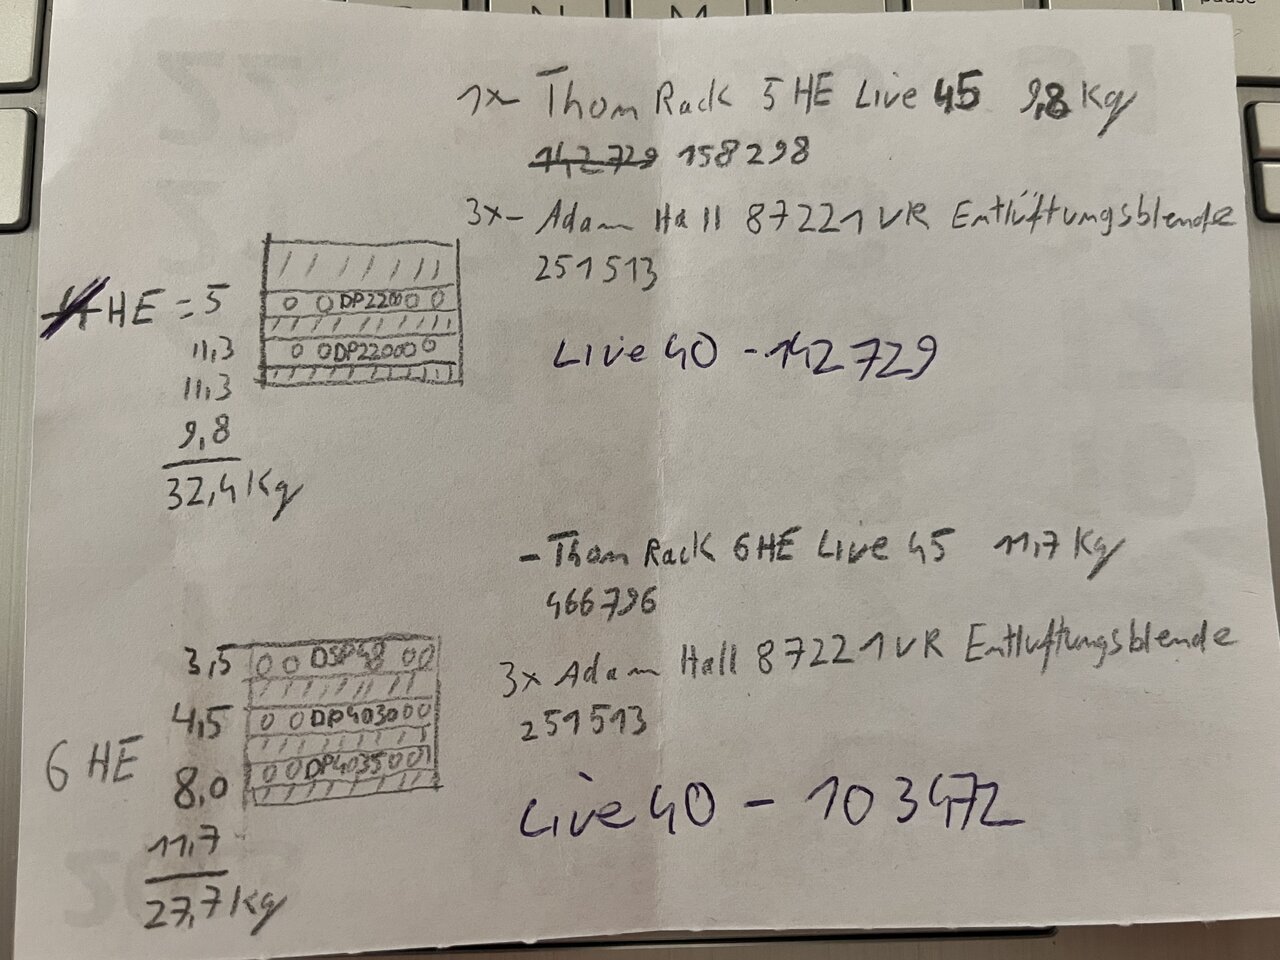 1x- Thom Rack 5 HE Live 45 9,8 Kg
142729 158298
3x- Adam Hall 87221VR Entlüftungsblende
251513
HE = 5
DP2200
11,3
DP2200
11,3
9,8
32,4 Kg
Live 40 - 142729
- Thom Rack 6HE Live 45 11,7 Kg
466796
3x Adam Hall 87221VR Entluftungsblende
251513
3,5 DSP48
4,5 DP4030
6 HE
8,0 DP4035
11,7
27,7 Kg
Live 40 - 103472
pause
N
M